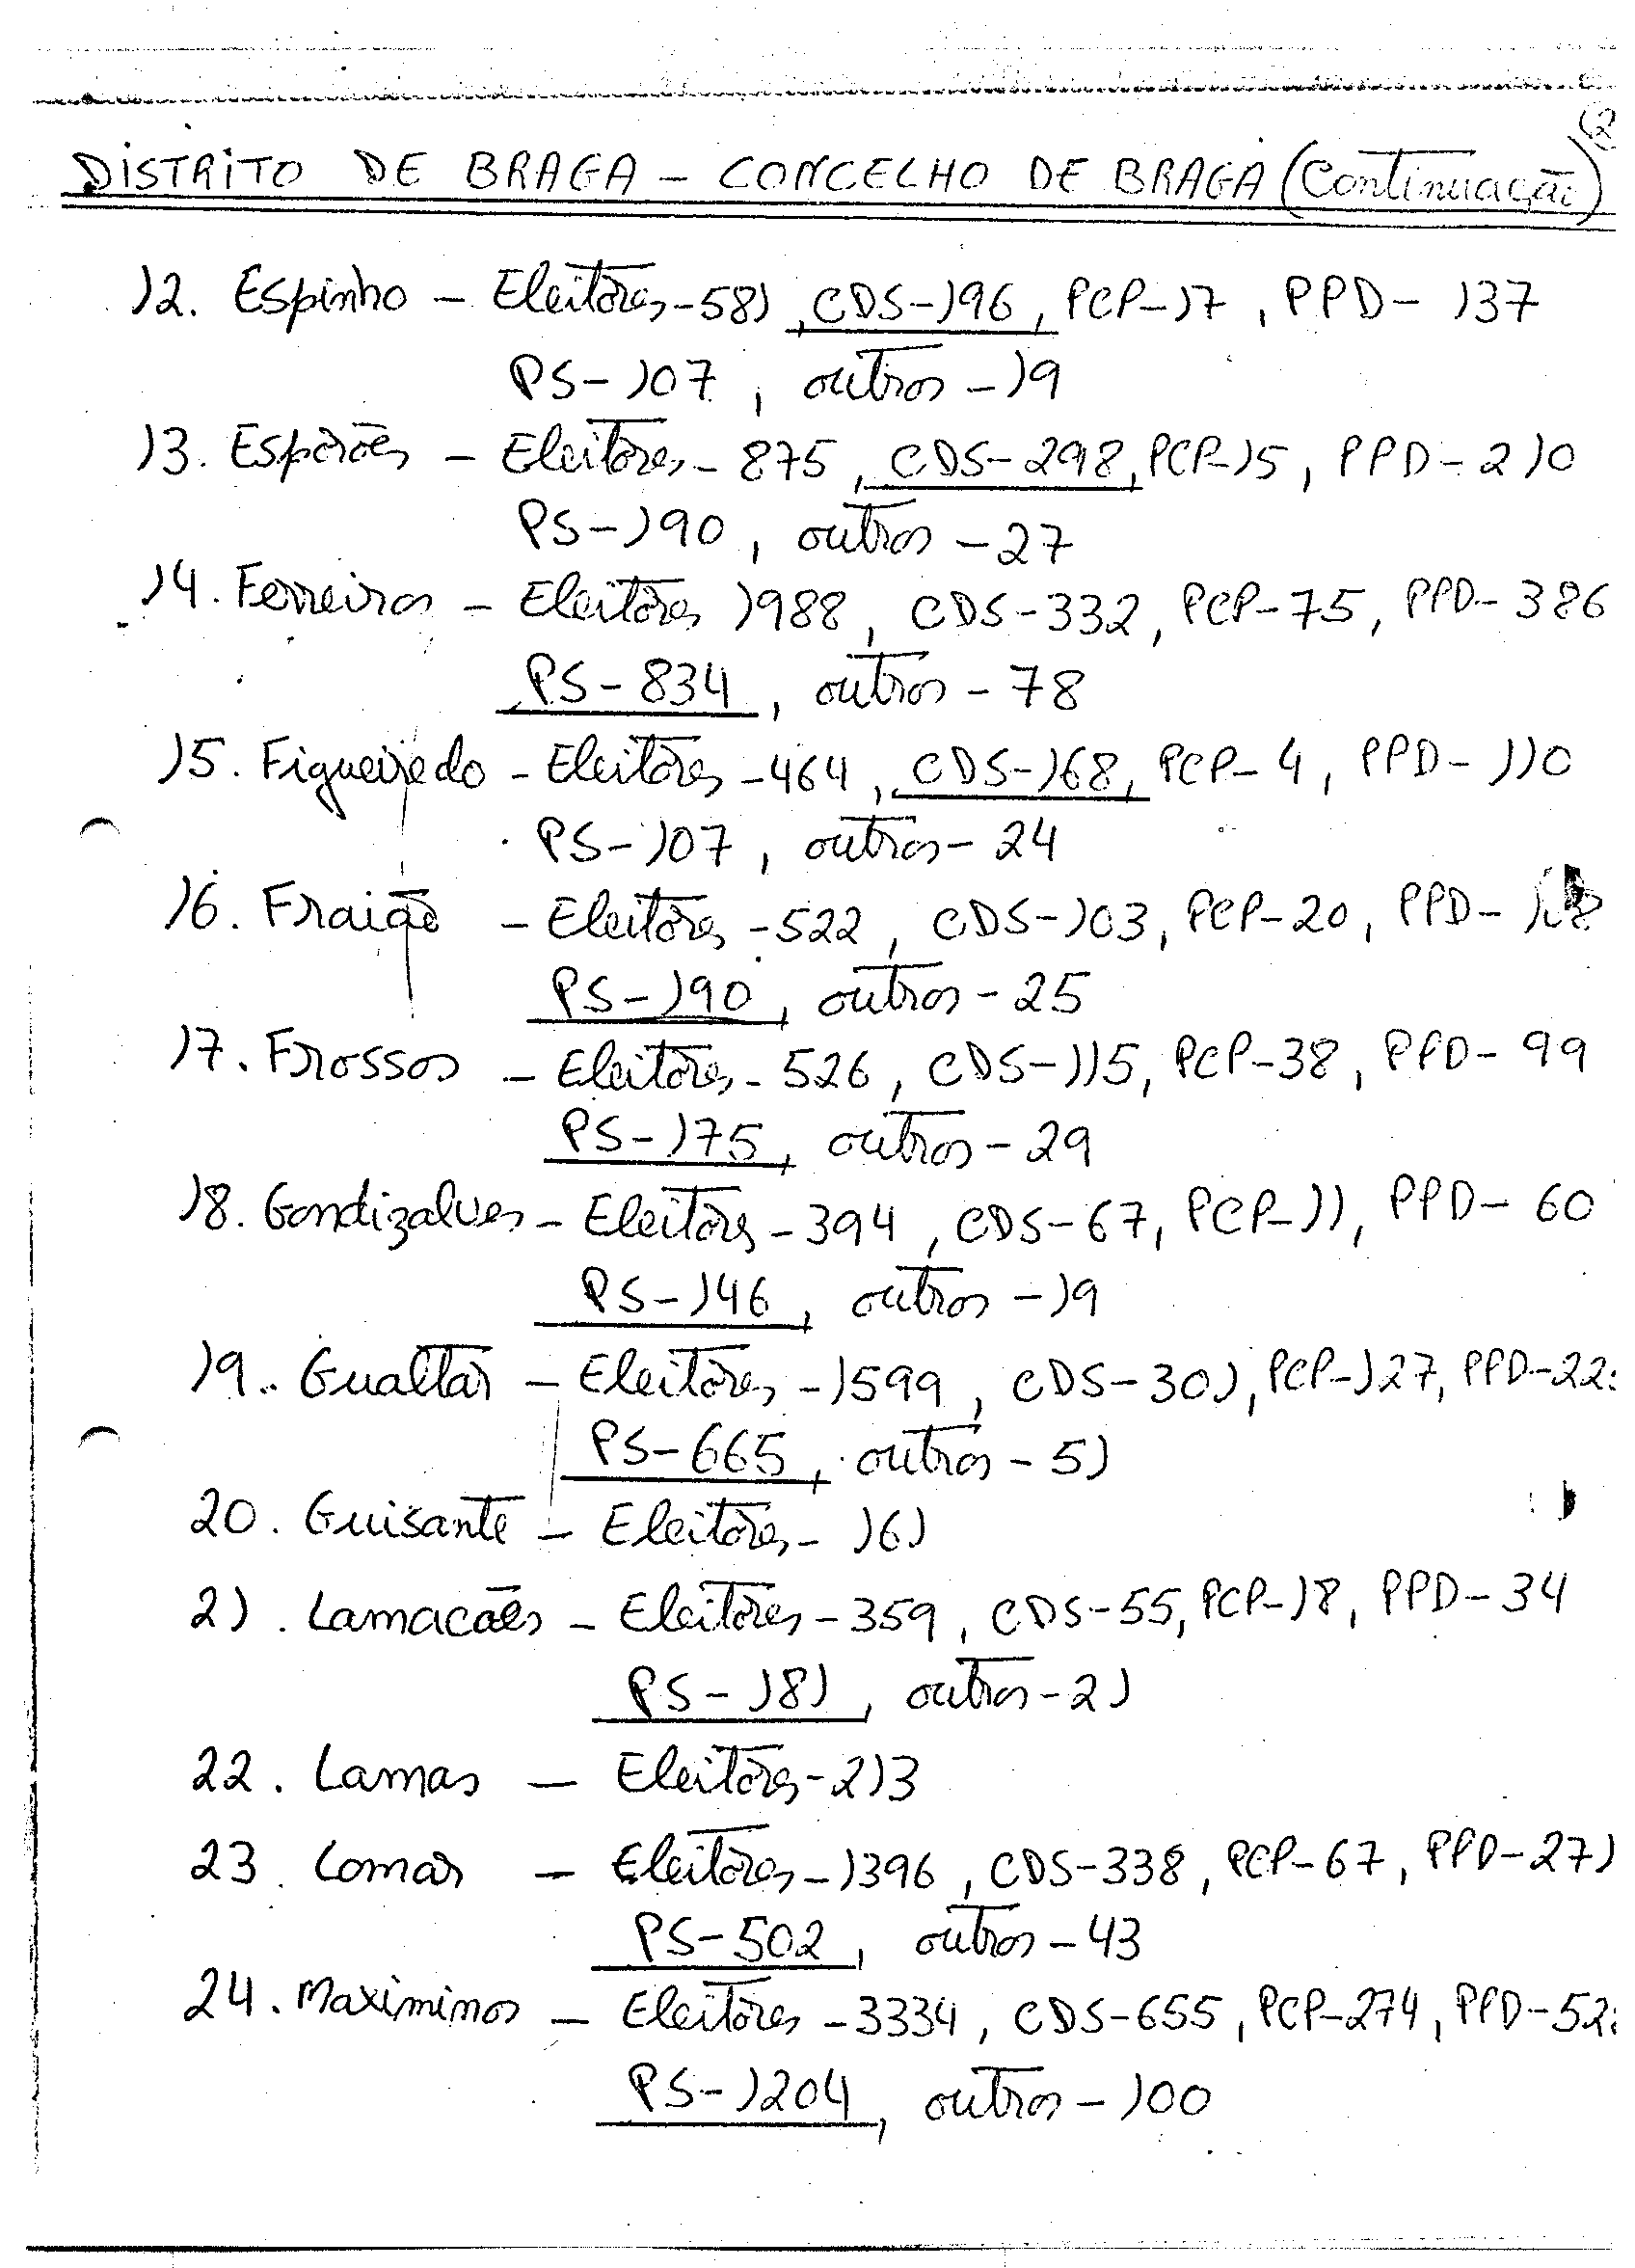 (2
DISTRITO DE BRAGA - CONCELHO DE BRAGA (Continuação)
12. Espinho - Eleitores - 581, CDS - 196, PCP - 17, PPD - 137
PS - 107, outros - 19
13. Esporões - Eleitores - 875, CDS - 298, PCP - 15, PPD - 210
PS - 190, outros - 27
14. Ferreiros - Eleitores 1988, CDS - 332, PCP - 75, PPD - 386
PS - 834, outros - 78
15. Figueiredo - Eleitores - 464, CDS - 168, PCP - 4, PPD - 110
PS - 107, outros - 24
16. Fraião - Eleitores - 522, CDS - 103, PCP - 20, PPD -
PS - 190, outros - 25
17. Frossos - Eleitores - 526, CDS - 115, PCP - 38, PPD - 99
PS - 175, outros - 29
18. Gondizalves - Eleitores - 394, CDS - 67, PCP - 11, PPD - 60
PS - 146, outros - 19
19. Gualtar - Eleitores - 1599, CDS - 301, PCP - 127, PPD - 22
PS - 665, outros - 51
20. Guisante - Eleitores - 161
21. Lamacães - Eleitores - 359, CDS - 55, PCP - 18, PPD - 34
PS - 181, outros - 21
22. Lamas - Eleitores - 213
23. Lomar - Eleitores - 1396, CDS - 338, PCP - 67, PPD - 271
PS - 502, outros - 43
24. Maximinos - Eleitores - 3334, CDS - 655, PCP - 274, PPD - 52
PS - 1204, outros - 100